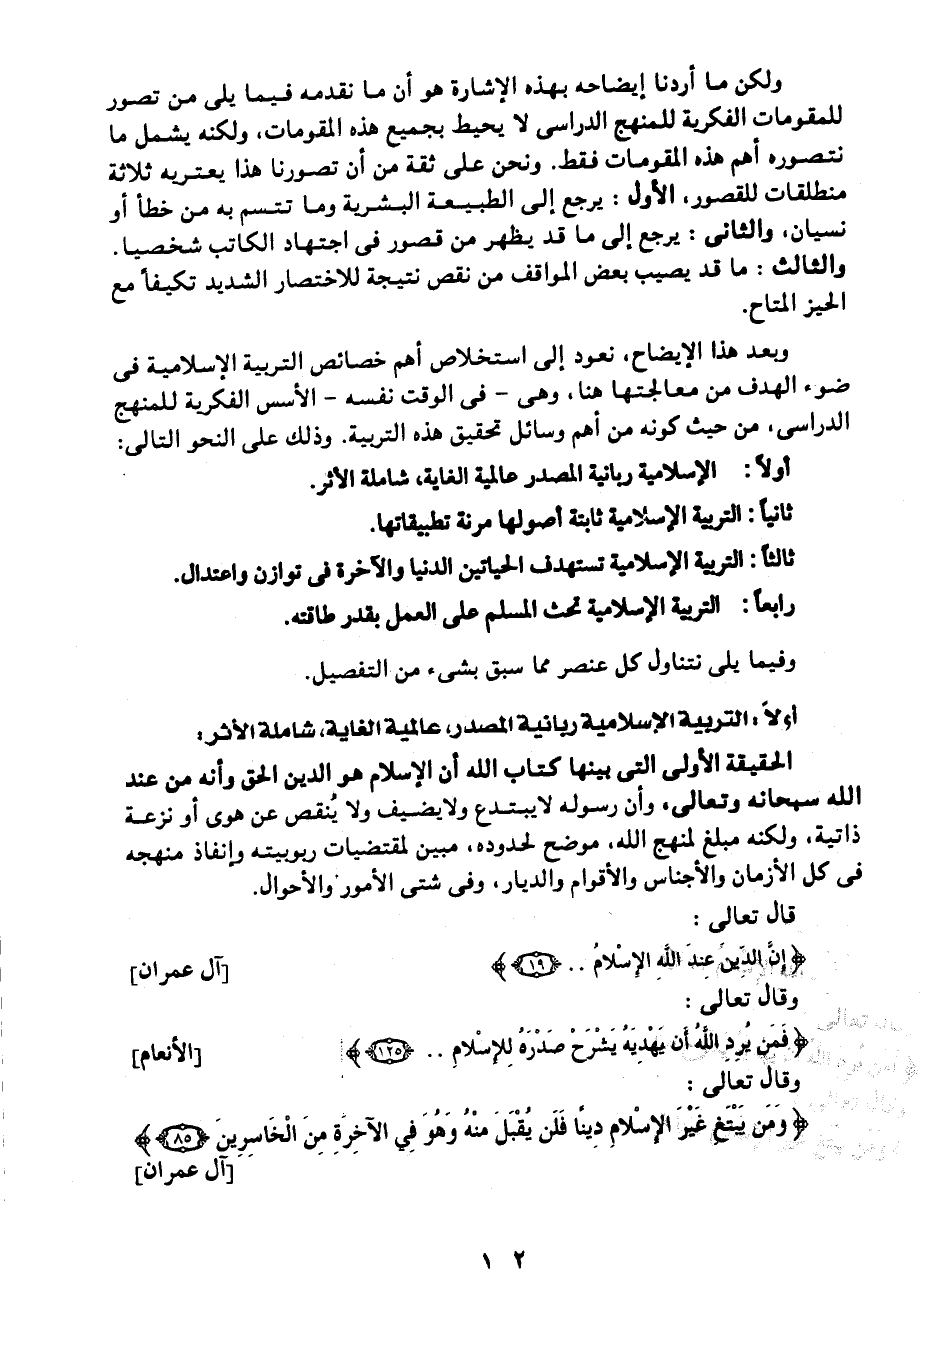 ولكن ما أردنا إيضاحه بهذه الإشارة هو أن ما نقدمه فيما يلى من تصور
للمقومات الفكرية للمنهج الدراسى لا يحيط بجميع هذه المقومات، ولكنه يشمل ما
نتصوره أهم هذه المقومات فقط. ونحن على ثقة من أن تصورنا هذا يعتريه ثلاثة
منطلقات للقصور، الأول : يرجع إلى الطبيعة البشرية وما تتسم به من خطأ أو
نسيان، والثانى : يرجع إلى ما قد يظهر من قصور فى اجتهاد الكاتب شخصيا.
والثالث : ما قد يصيب بعض المواقف من نقص نتيجة للاختصار الشديد تكيفاً مع
الحيز المتاح.
وبعد هذا الإيضاح، نعود إلى استخلاص أهم خصائص التربية الإسلامية فى
ضوء الهدف من معالجتها هنا، وهى - فى الوقت نفسه - الأسس الفكرية للمنهج
الدراسى، من حيث كونه من أهم وسائل تحقيق هذه التربية. وذلك على النحو التالى:
أولاً: الإسلامية ربانية المصدر عالمية الغاية، شاملة الأثر.
ثانياً: التربية الإسلامية ثابتة أصولها مرنة تطبيقاتها.
ثالثاً: التربية الإسلامية تستهدف الحياتين الدنيا والآخرة فى توازن واعتدال.
رابعاً: التربية الإسلامية تحث المسلم على العمل بقدر طاقته.
وفيما يلى نتناول كل عنصر مما سبق بشىء من التفصيل.
أولاً: التربية الإسلامية ربانية المصدر، عالمية الغاية، شاملة الأثر:
الحقيقة الأولى التى بينها كتاب الله أن الإسلام هو الدين الحق وأنه من عند
الله سبحانه وتعالى، وأن رسوله لايبتدع ولايضيف ولا يُنقص عن هوى أو نزعة
ذاتية، ولكنه مبلغ لمنهج الله، موضح لحدوده، مبين لمقتضيات ربوبيته وإنفاذ منهجه
فى كل الأزمان والأجناس والأقوام والديار، وفى شتى الأمور والأحوال.
قال تعالى :
﴿ إِنَّ الدِّينَ عِندَ اللَّهِ الإِسْلامُ .. ﴿١٩﴾ ﴾ [آل عمران]
وقال تعالى :
﴿ فَمَن يُرِدِ اللَّهُ أَن يَهْدِيَهُ يَشْرَحْ صَدْرَهُ لِلإِسْلامِ .. ﴿١٢٥﴾ ﴾ [الأنعام]
وقال تعالى :
﴿ وَمَن يَبْتَغِ غَيْرَ الإِسْلامِ دِينًا فَلَن يُقْبَلَ مِنْهُ وَهُوَ فِي الآخِرَةِ مِنَ الْخَاسِرِينَ ﴿٨٥﴾ ﴾
[آل عمران]
١٢